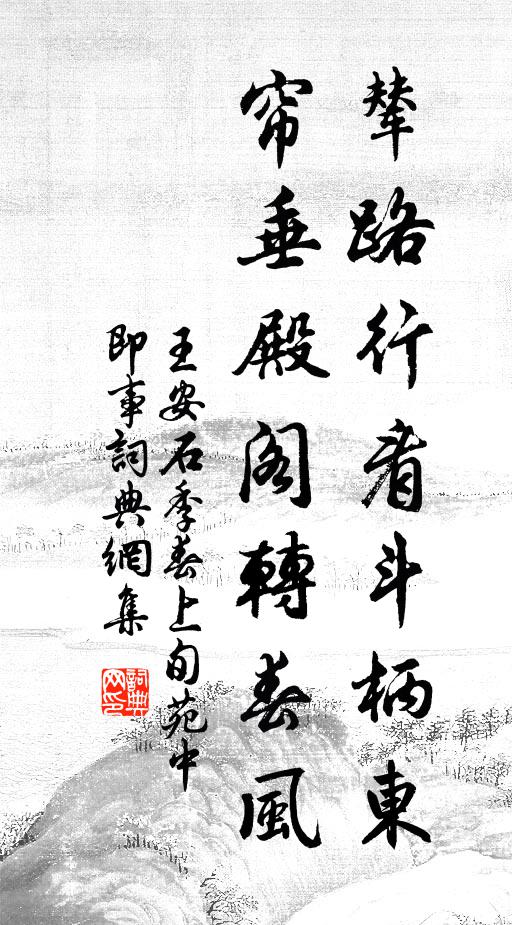 輦路行看斗柄東
帘垂殿閣轉春風
王安石季春上旬苑中
即事詞典網集
詞典
网印